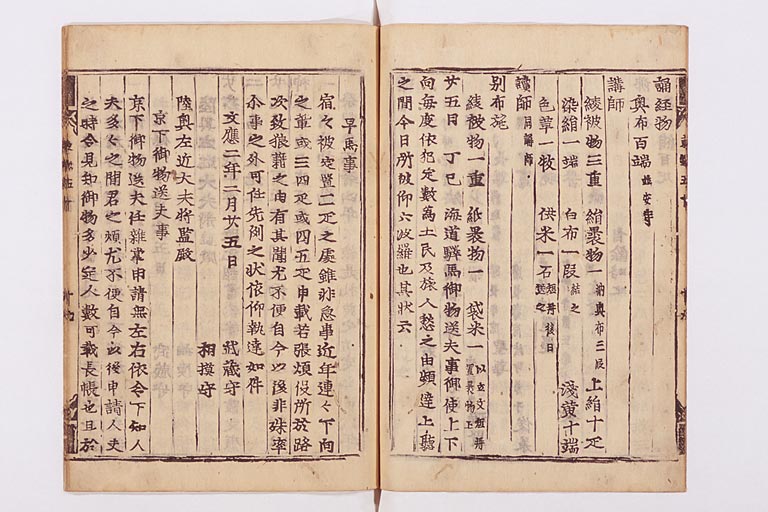 誦経物
奥布百端
講師
綾被物三重 絹褁物一 納奥布三段 上絹十疋
染絹一端 白布一段 結之 淺黄十端
色革一枚 供米一石
讀師 同講師
別布施
綾被物一重 紙褁物一 袋米一
廿五日 丁巳 海道驛馬御物送夫事御使上下
向毎度依犯定數萬土民及旅人愁之由頗達上聽
之間今日所被仰六波羅也其状云
早馬事
宿々被定置二疋之處雖非急事近年連々下向
之輩或三四疋或四五疋申載若張煩役所放路
次致狼藉之由有其聞尤不便自今以後非殊率
尒事之外可任先例之状依仰執達如件
文應二年二月廿五日 武藏守
相摸守
陸奥左近大夫將監殿
京下御物送夫事
京下御物送夫任雜掌申請無左右依令下知人
夫多々之間君之煩尤不便自今以後申請人夫
之時令見知御物多少定人數可載長帳也且於